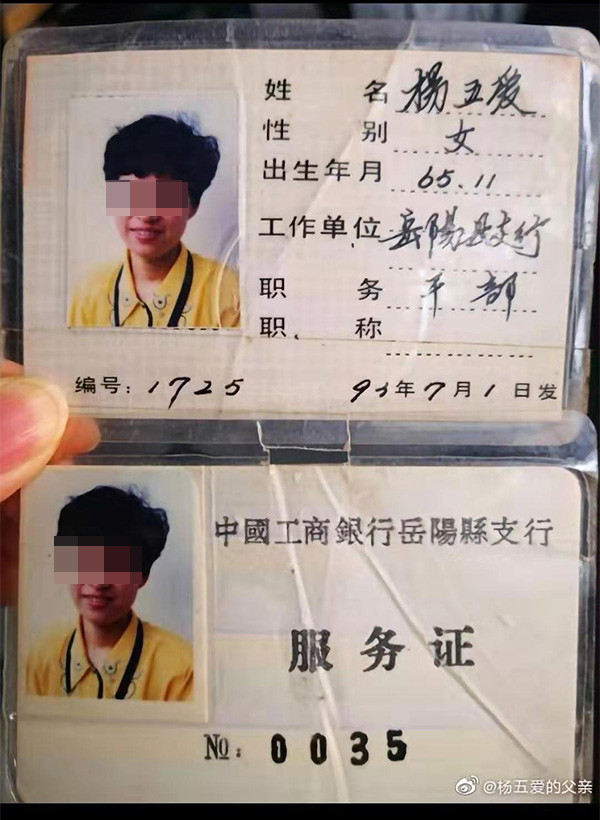 姓 名 杨五爱
性 别 女
出生年月 65.11
工作单位 岳陽县支行
职 务 干部
职 称
编号: 1725 93年7月1日发
中國工商銀行岳陽縣支行
服务证
№: 0035
@杨五爱的父亲